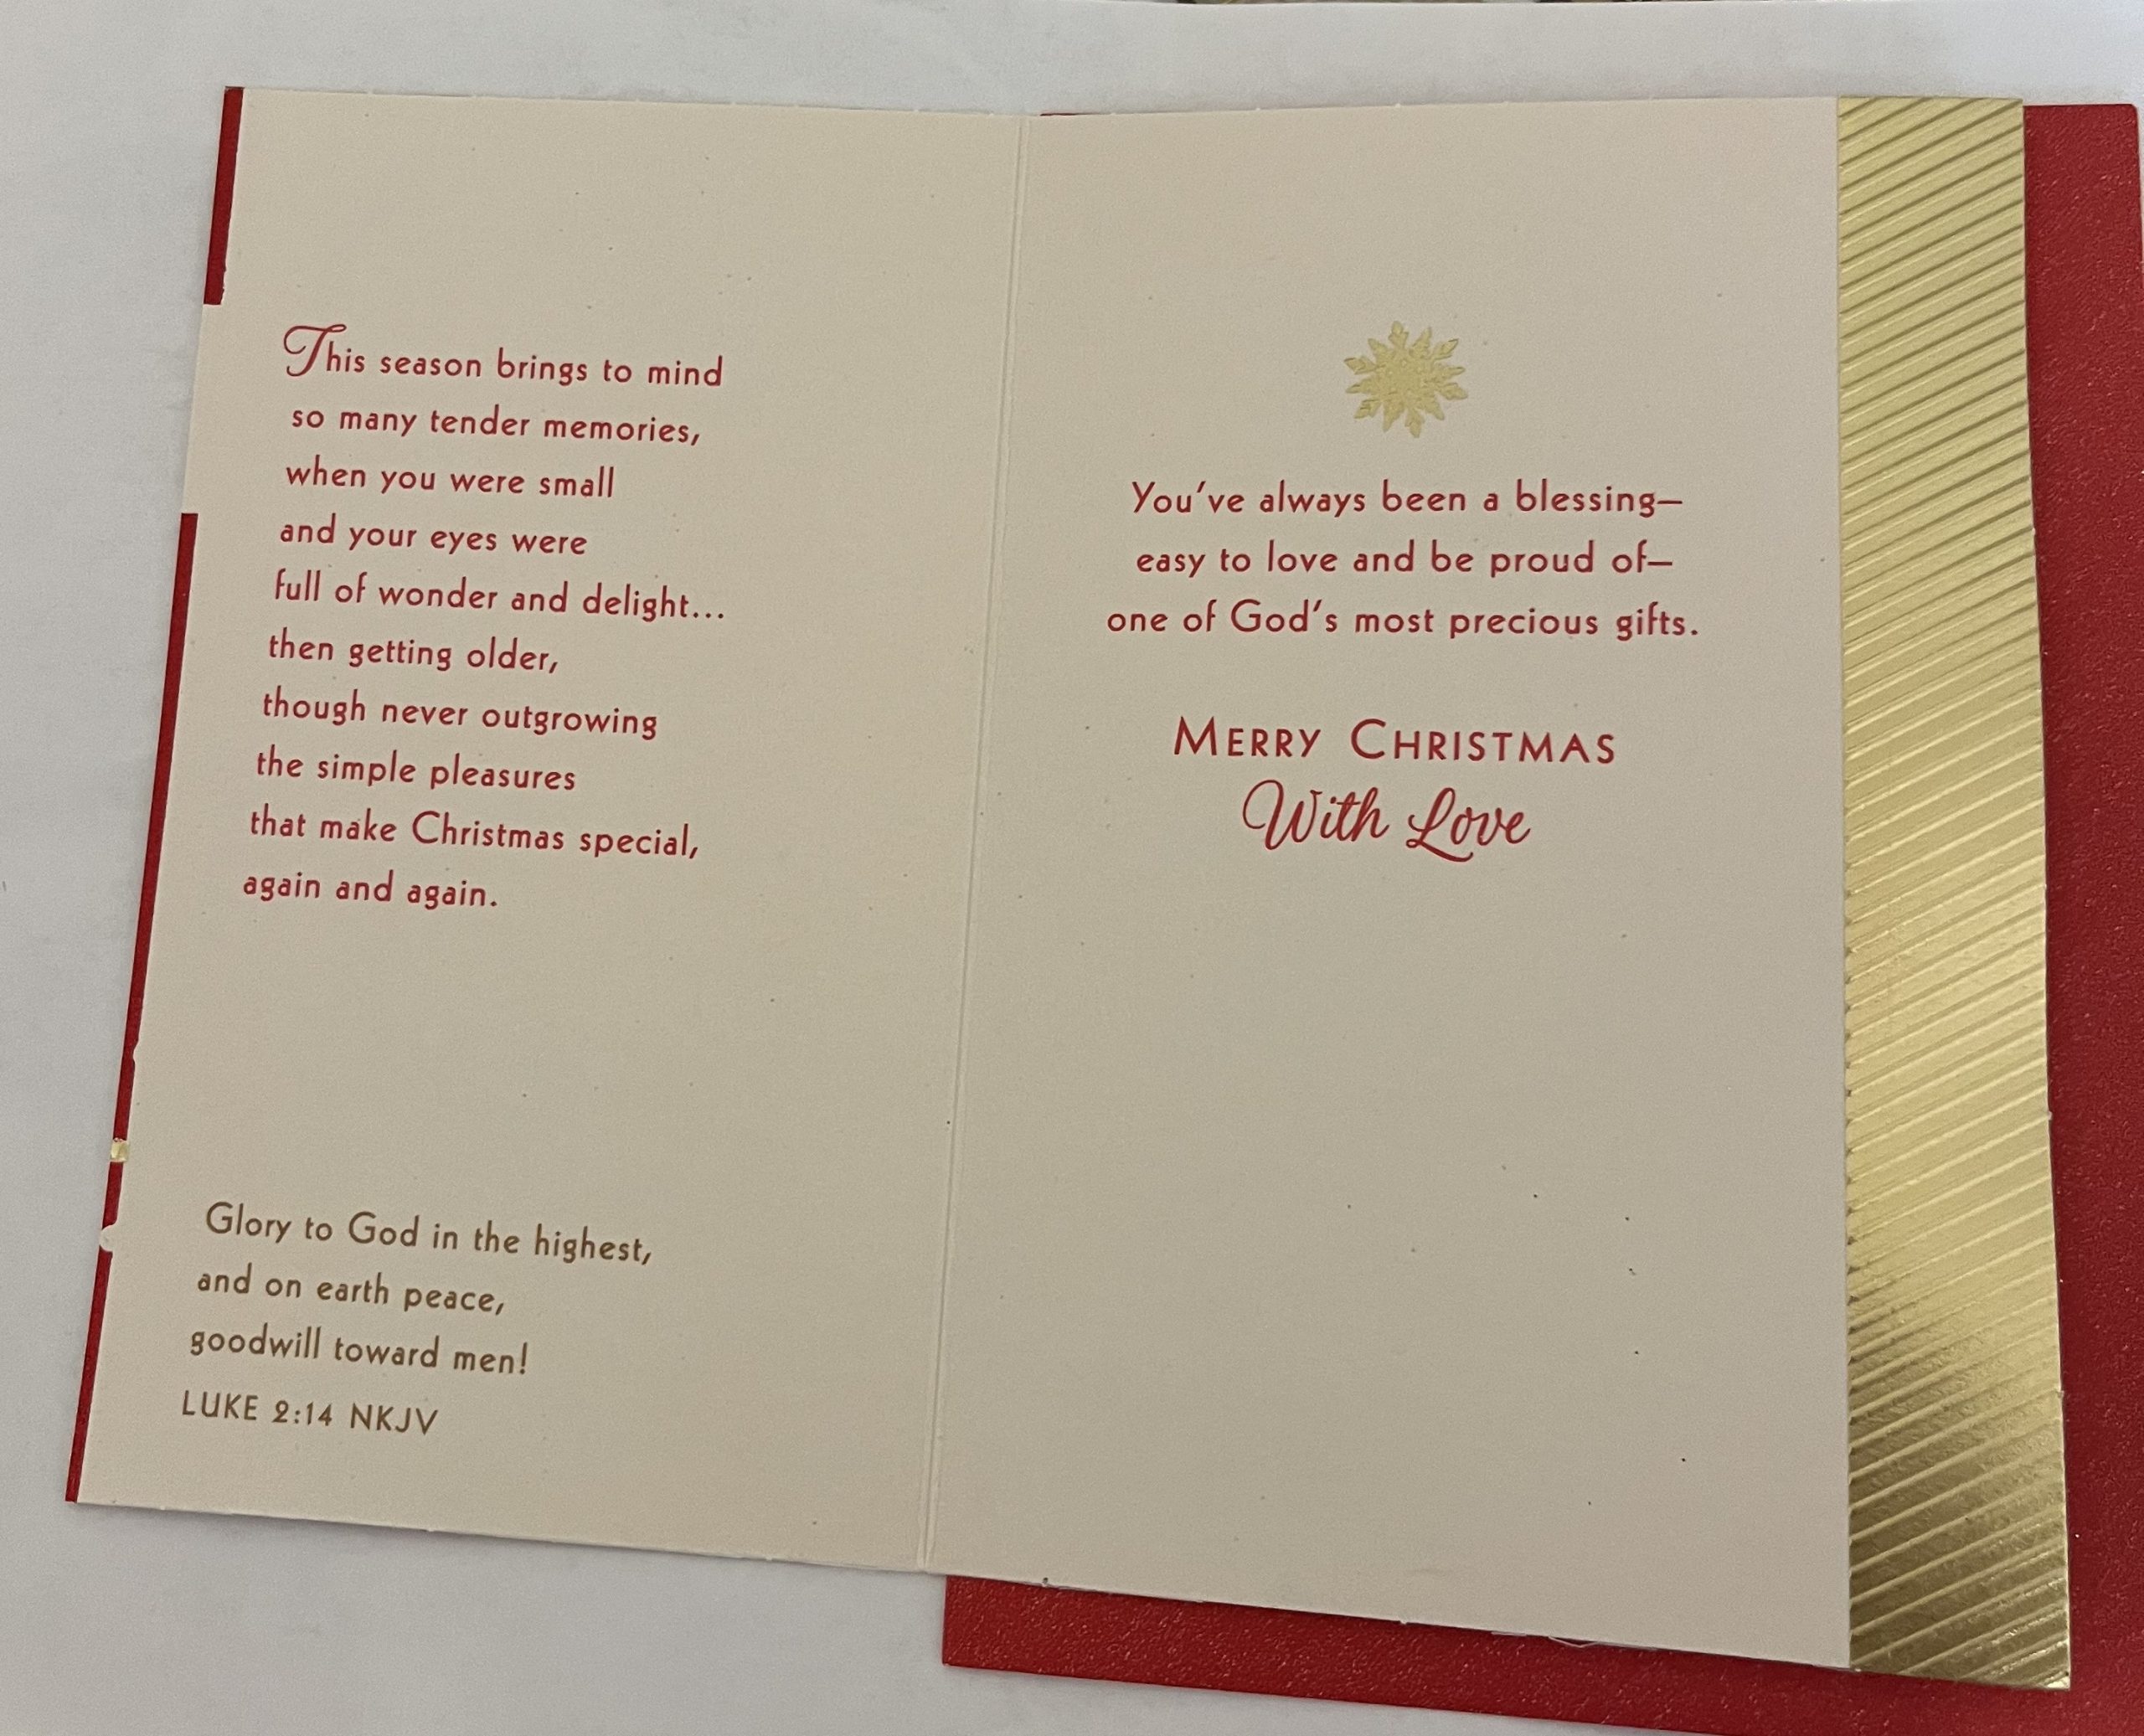 This season brings to mind
so many tender memories,
when you were small
and your eyes were
full of wonder and delight...
then getting older,
though never outgrowing
the simple pleasures
that make Christmas special,
again and again.
Glory to God in the highest,
and on earth peace,
goodwill toward men!
LUKE 2:14 NKJV
You've always been a blessing—
easy to love and be proud of—
one of God's most precious gifts.
MERRY CHRISTMAS
With Love